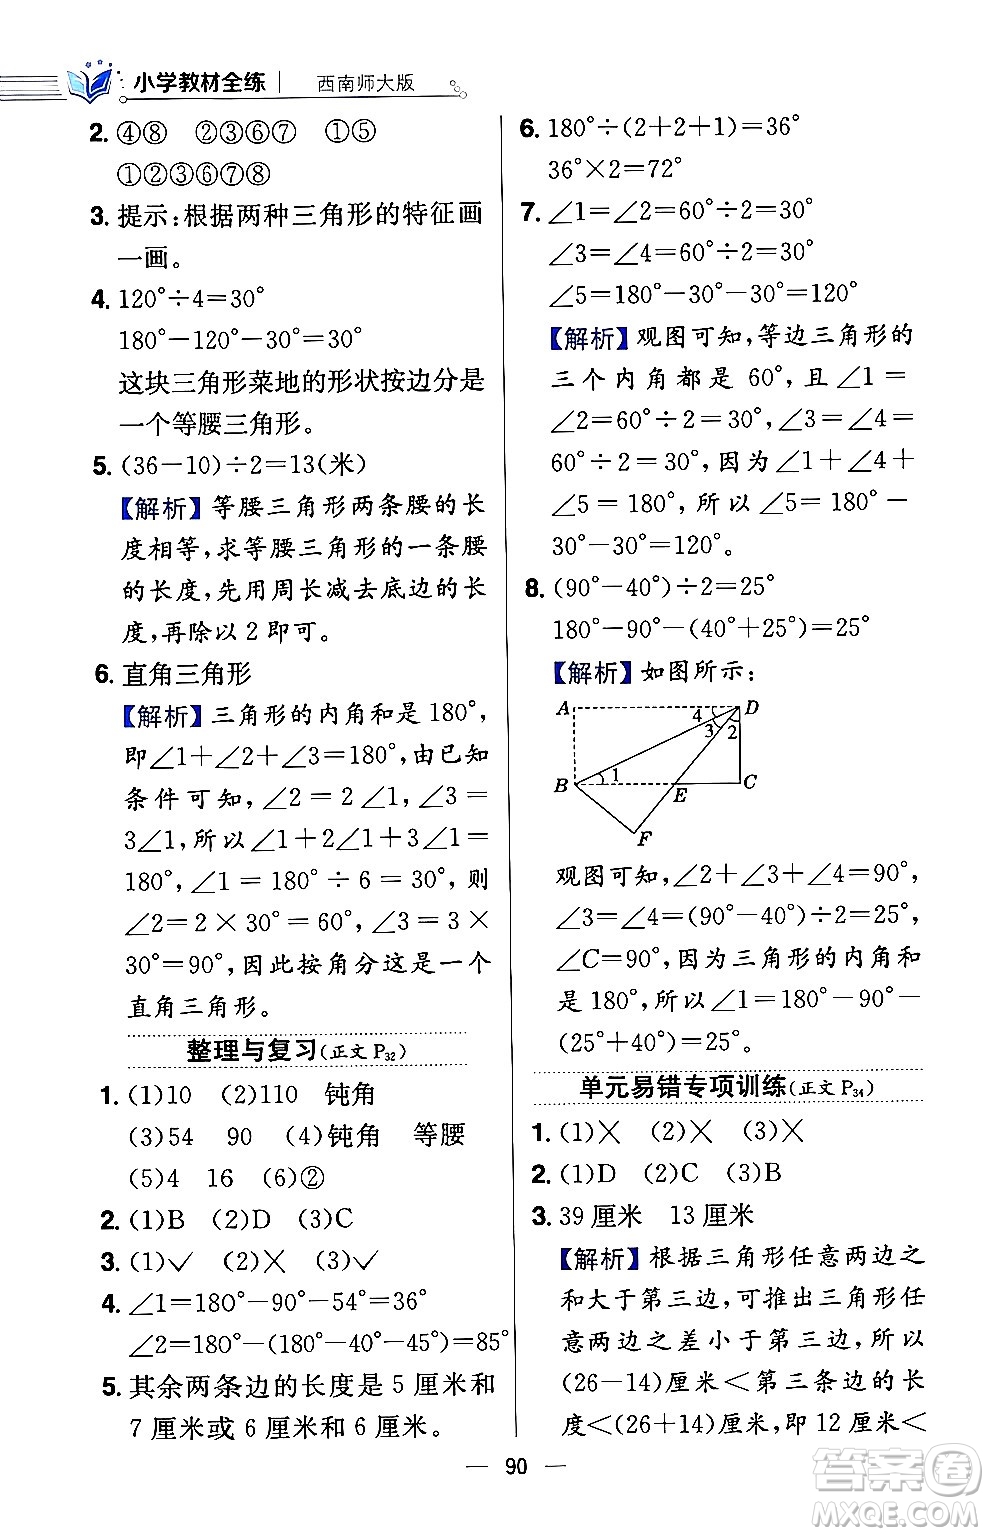 小学教材全练 西南师大版
2. ④⑧ ②③⑥⑦ ①⑤
①②③⑥⑦⑧
3. 提示:根据两种三角形的特征画
一画。
4. 120°÷4=30°
180°-120°-30°=30°
这块三角形菜地的形状按边分是
一个等腰三角形。
5. (36-10)÷2=13(米)
【解析】等腰三角形两条腰的长
度相等,求等腰三角形的一条腰
的长度,先用周长减去底边的长
度,再除以2即可。
6. 直角三角形
【解析】三角形的内角和是180°,
即∠1+∠2+∠3=180°,由已知
条件可知,∠2=2∠1,∠3=
3∠1,所以∠1+2∠1+3∠1=
180°,∠1=180°÷6=30°,则
∠2=2×30°=60°,∠3=3×
30°=90°,因此按角分这是一个
直角三角形。
整理与复习(正文P32)
1. (1)10 (2)110 钝角
(3)54 90 (4)钝角 等腰
(5)4 16 (6)②
2. (1)B (2)D (3)C
3. (1)✓ (2)✗ (3)✓
4. ∠1=180°-90°-54°=36°
∠2=180°-(180°-40°-45°)=85°
5. 其余两条边的长度是5厘米和
7厘米或6厘米和6厘米。
6. 180°÷(2+2+1)=36°
36°×2=72°
7. ∠1=∠2=60°÷2=30°
∠3=∠4=60°÷2=30°
∠5=180°-30°-30°=120°
【解析】观图可知,等边三角形的
三个内角都是60°,且∠1=
∠2=60°÷2=30°,∠3=∠4=
60°÷2=30°,因为∠1+∠4+
∠5=180°,所以∠5=180°-
30°-30°=120°。
8. (90°-40°)÷2=25°
180°-90°-(40°+25°)=25°
【解析】如图所示:
A D
4
3 2
1
B E C
F
观图可知,∠2+∠3+∠4=90°,
∠3=∠4=(90°-40°)÷2=25°,
∠C=90°,因为三角形的内角和
是180°,所以∠1=180°-90°-
(25°+40°)=25°。
单元易错专项训练(正文P34)
1. (1)✗ (2)✗ (3)✗
2. (1)D (2)C (3)B
3. 39厘米 13厘米
【解析】根据三角形任意两边之
和大于第三边,可推出三角形任
意两边之差小于第三边,所以
(26-14)厘米<第三条边的长
度<(26+14)厘米,即12厘米<
90
作业精灵
MXQE.COM